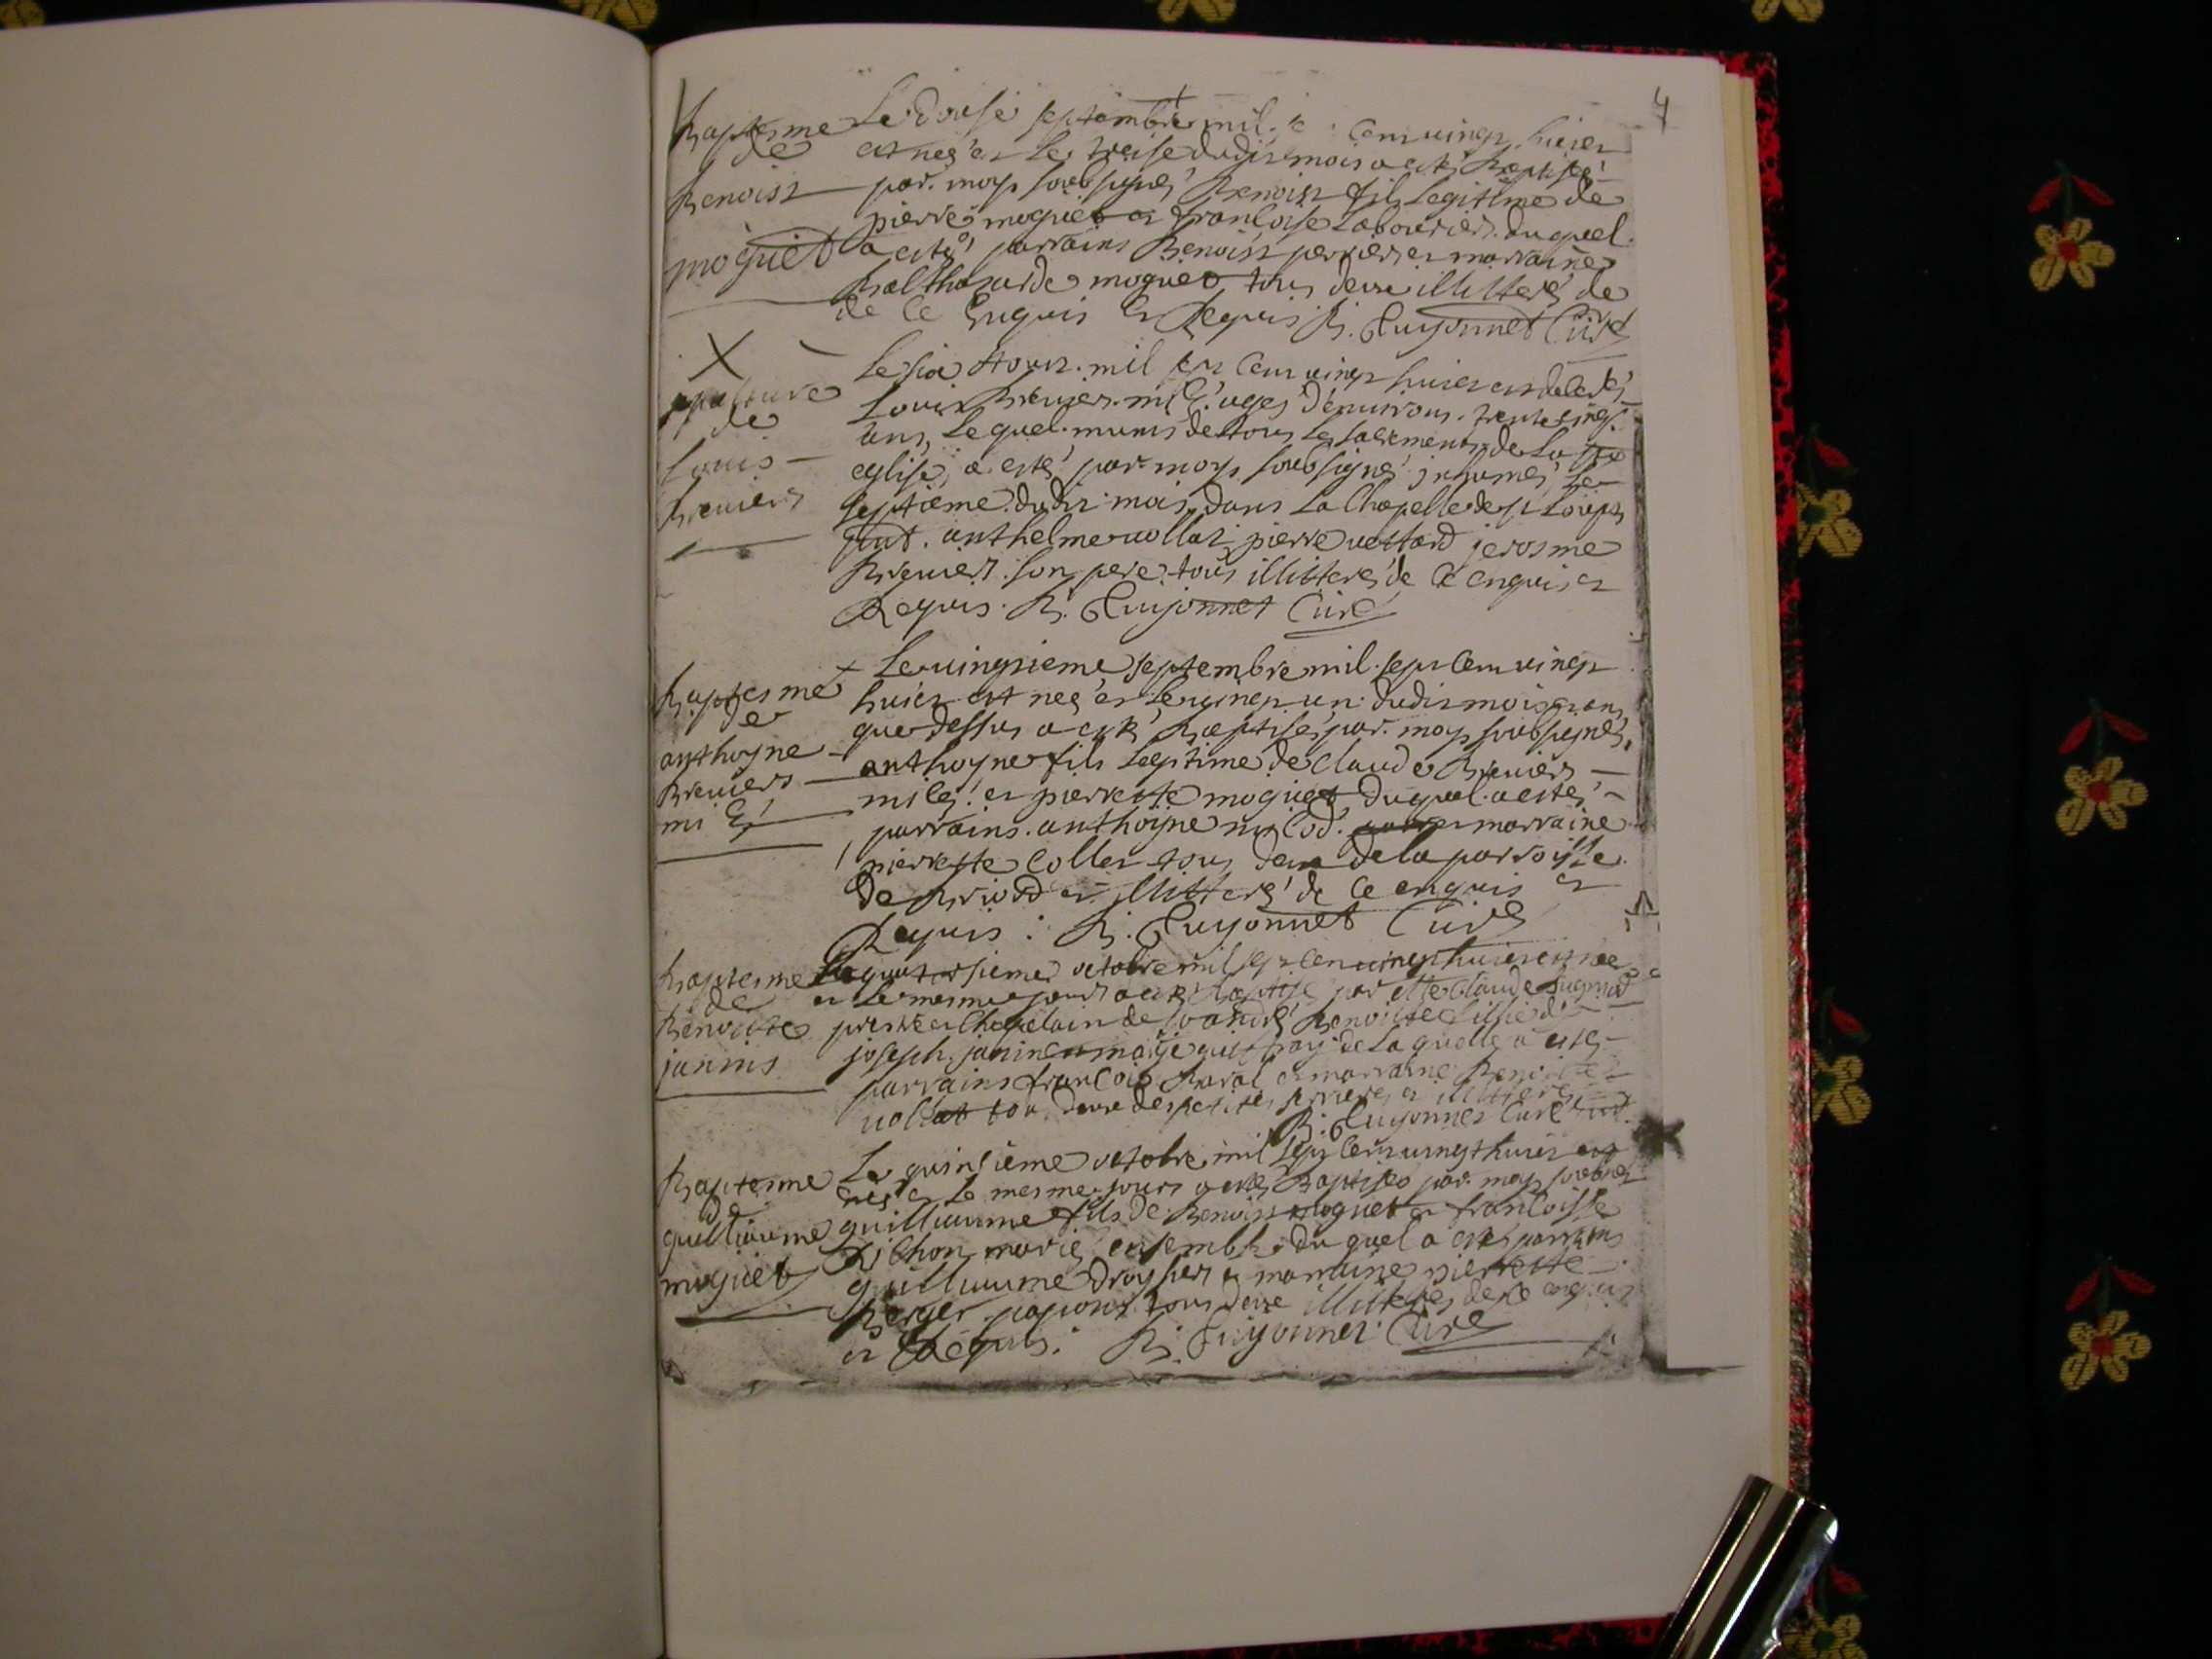 4
Baptesme Le douse septembre mil cent vingt huict
de est neé et le treise dudit mois a esté Baptisé
Benoist par moy soubsigné Benoist fils legitime de
pierre moguet et francoise Labourier duquel
moguet a esté parrains Benoist perrier et marraine
Balthasarde moguet tous deux illitteré de
de ce Enquis et Requis B. Guyonnet Curé
X Le six aoust mil sept cent vingt huict est decedé
sepulture Louis Breviers milé agé d'environs trente cinq
de ans, Lequel munis de tous les sacrements de La ste
Louis eglise, a esté par moy soubsigné inhumé, le
Breviers septieme dudit mois dans La Chapelle de st
pnt. anthelme vollat pierre vettard jerosme
Breviers son pere tous illitteré de ce enquis et
Requis. B. Guyonnet Curé
Le vingtieme septembre mil sept cent vingt
Baptesme huict est neé et le vingt un dudit mois et an
de que dessus a esté Baptisé par moy soubsigné,
anthoyne anthoyne fils Legitime de Claude Breviers
Breviers milé et pierrette moguet duquel a esté
milé parrains anthoyne marraine
pierrette Collet tous deux de la parroisse
de Briord et illitteré de ce enquis et
Requis : B. Guyonnet Curé
Baptesme Le quatorsieme octobre mil sept cent vingt huict est née
de et le mesme jours a esté Baptisé par Claude
Benoiste prestre et Chapelain de Benoiste fillie d
janins joseph janin et de Laquelle a esté
parrains francois Baral et marraine Benoiste
vollat tou deux des petites et illitteres
B. Guyonnet Curé
Baptesme Le quinsieme octobre mil sept cent vingt huict est
de neé et le mesme jours a esté Baptisé par moy soubsigné
guilliaume guilliaume fils de Benoist moguet et francoisse
moguet Richon marié ensemble duquel a esté parrains
guilliaume et marraine pierrette
Berger tous deux illitteré de ce enquis
et Requis. B. Guyonnet Curé